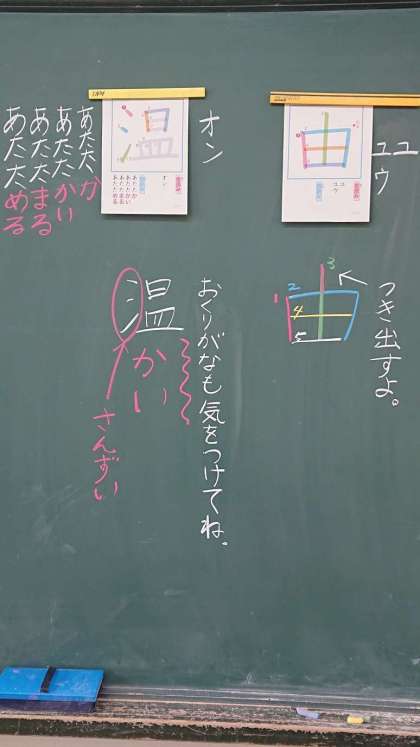 由
ユ
ユウ
1
2
3
4
5
つき出すよ。
温
オン
あたたか
あたたかい
あたたまる
あたためる
おくりがなも気をつけてね。
温かい
さんずい